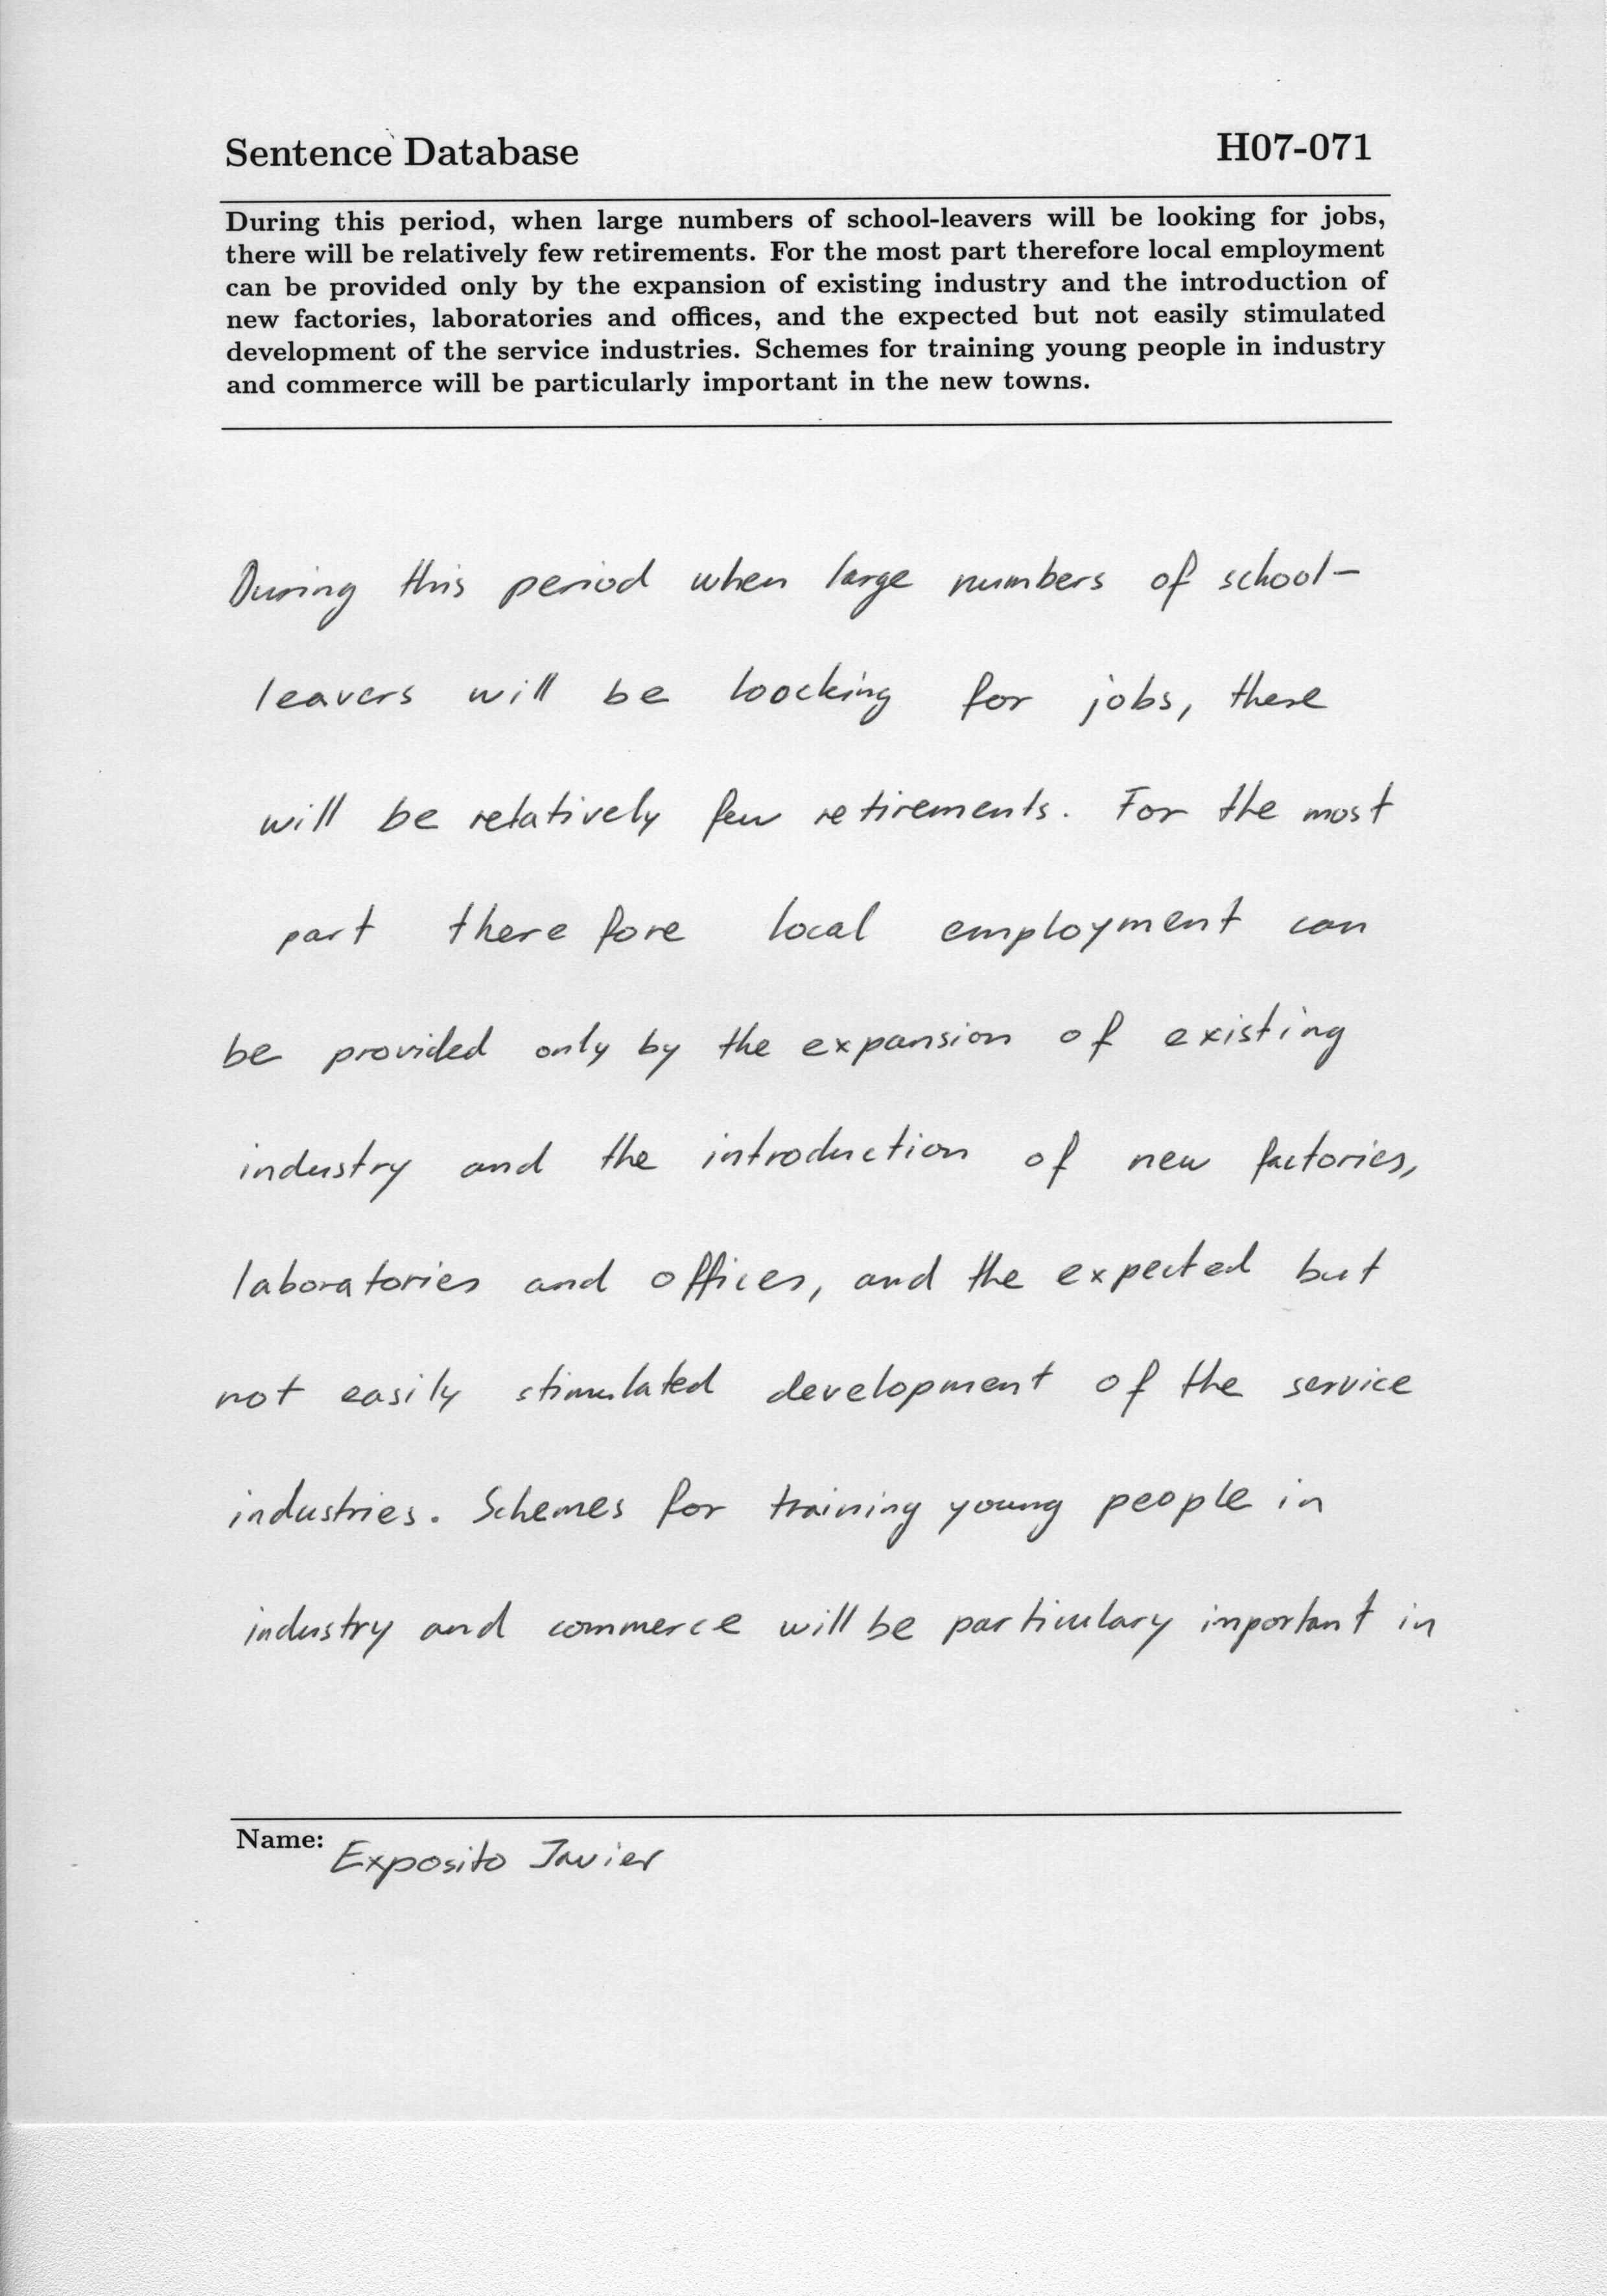 Sentence Database H07-071
During this period, when large numbers of school-leavers will be looking for jobs,
there will be relatively few retirements. For the most part therefore local employment
can be provided only by the expansion of existing industry and the introduction of
new factories, laboratories and offices, and the expected but not easily stimulated
development of the service industries. Schemes for training young people in industry
and commerce will be particularly important in the new towns.
During this period when large numbers of school-
leavers will be loocking for jobs, there
will be relatively few retirements. For the most
part therefore local employment can
be provided only by the expansion of existing
industry and the introduction of new factories,
laboratories and offices, and the expected but
not easily stimulated development of the service
industries. Schemes for training young people in
industry and commerce will be particulary important in
Name: Exposito Javier